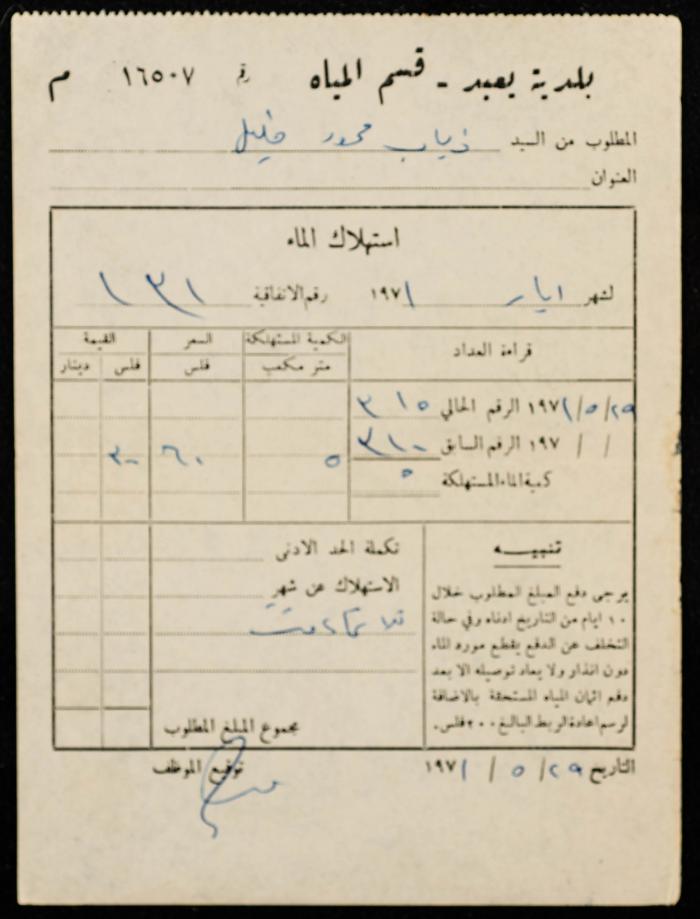 بلدية يعبد - قسم المياه رقم ١٦٥٠٧ م
المطلوب من السيد ذياب محمود خليل
العنوان
استهلاك الماء
لشهر ايار ١٩٧١ رقم الاتفاقية ١٣١
قراءة العداد الكمية المستهلكة السعر القيمة
متر مكعب فلس فلس دينار
٢٩/٥/١٩٧١ الرقم الحالي ٣١٥
/ / ١٩٧ الرقم السابق ٣١٠
٥ ٦٠ ٣٠٠
كمية الماء المستهلكة ٥
تنبيه
يرجى دفع المبلغ المطلوب خلال
١٠ ايام من التاريخ ادناه وفي حالة
التخلف عن الدفع يقطع مورد الماء
دون انذار ولا يعاد توصيله الا بعد
دفع اثمان المياه المستحقة بالاضافة
لرسم اعادة الربط البالغ ٢٠٠ فلس.
تكملة الحد الادنى
الاستهلاك عن شهر
مجموع المبلغ المطلوب
التاريخ ٢٩/٥/١٩٧١ توقيع الموظف